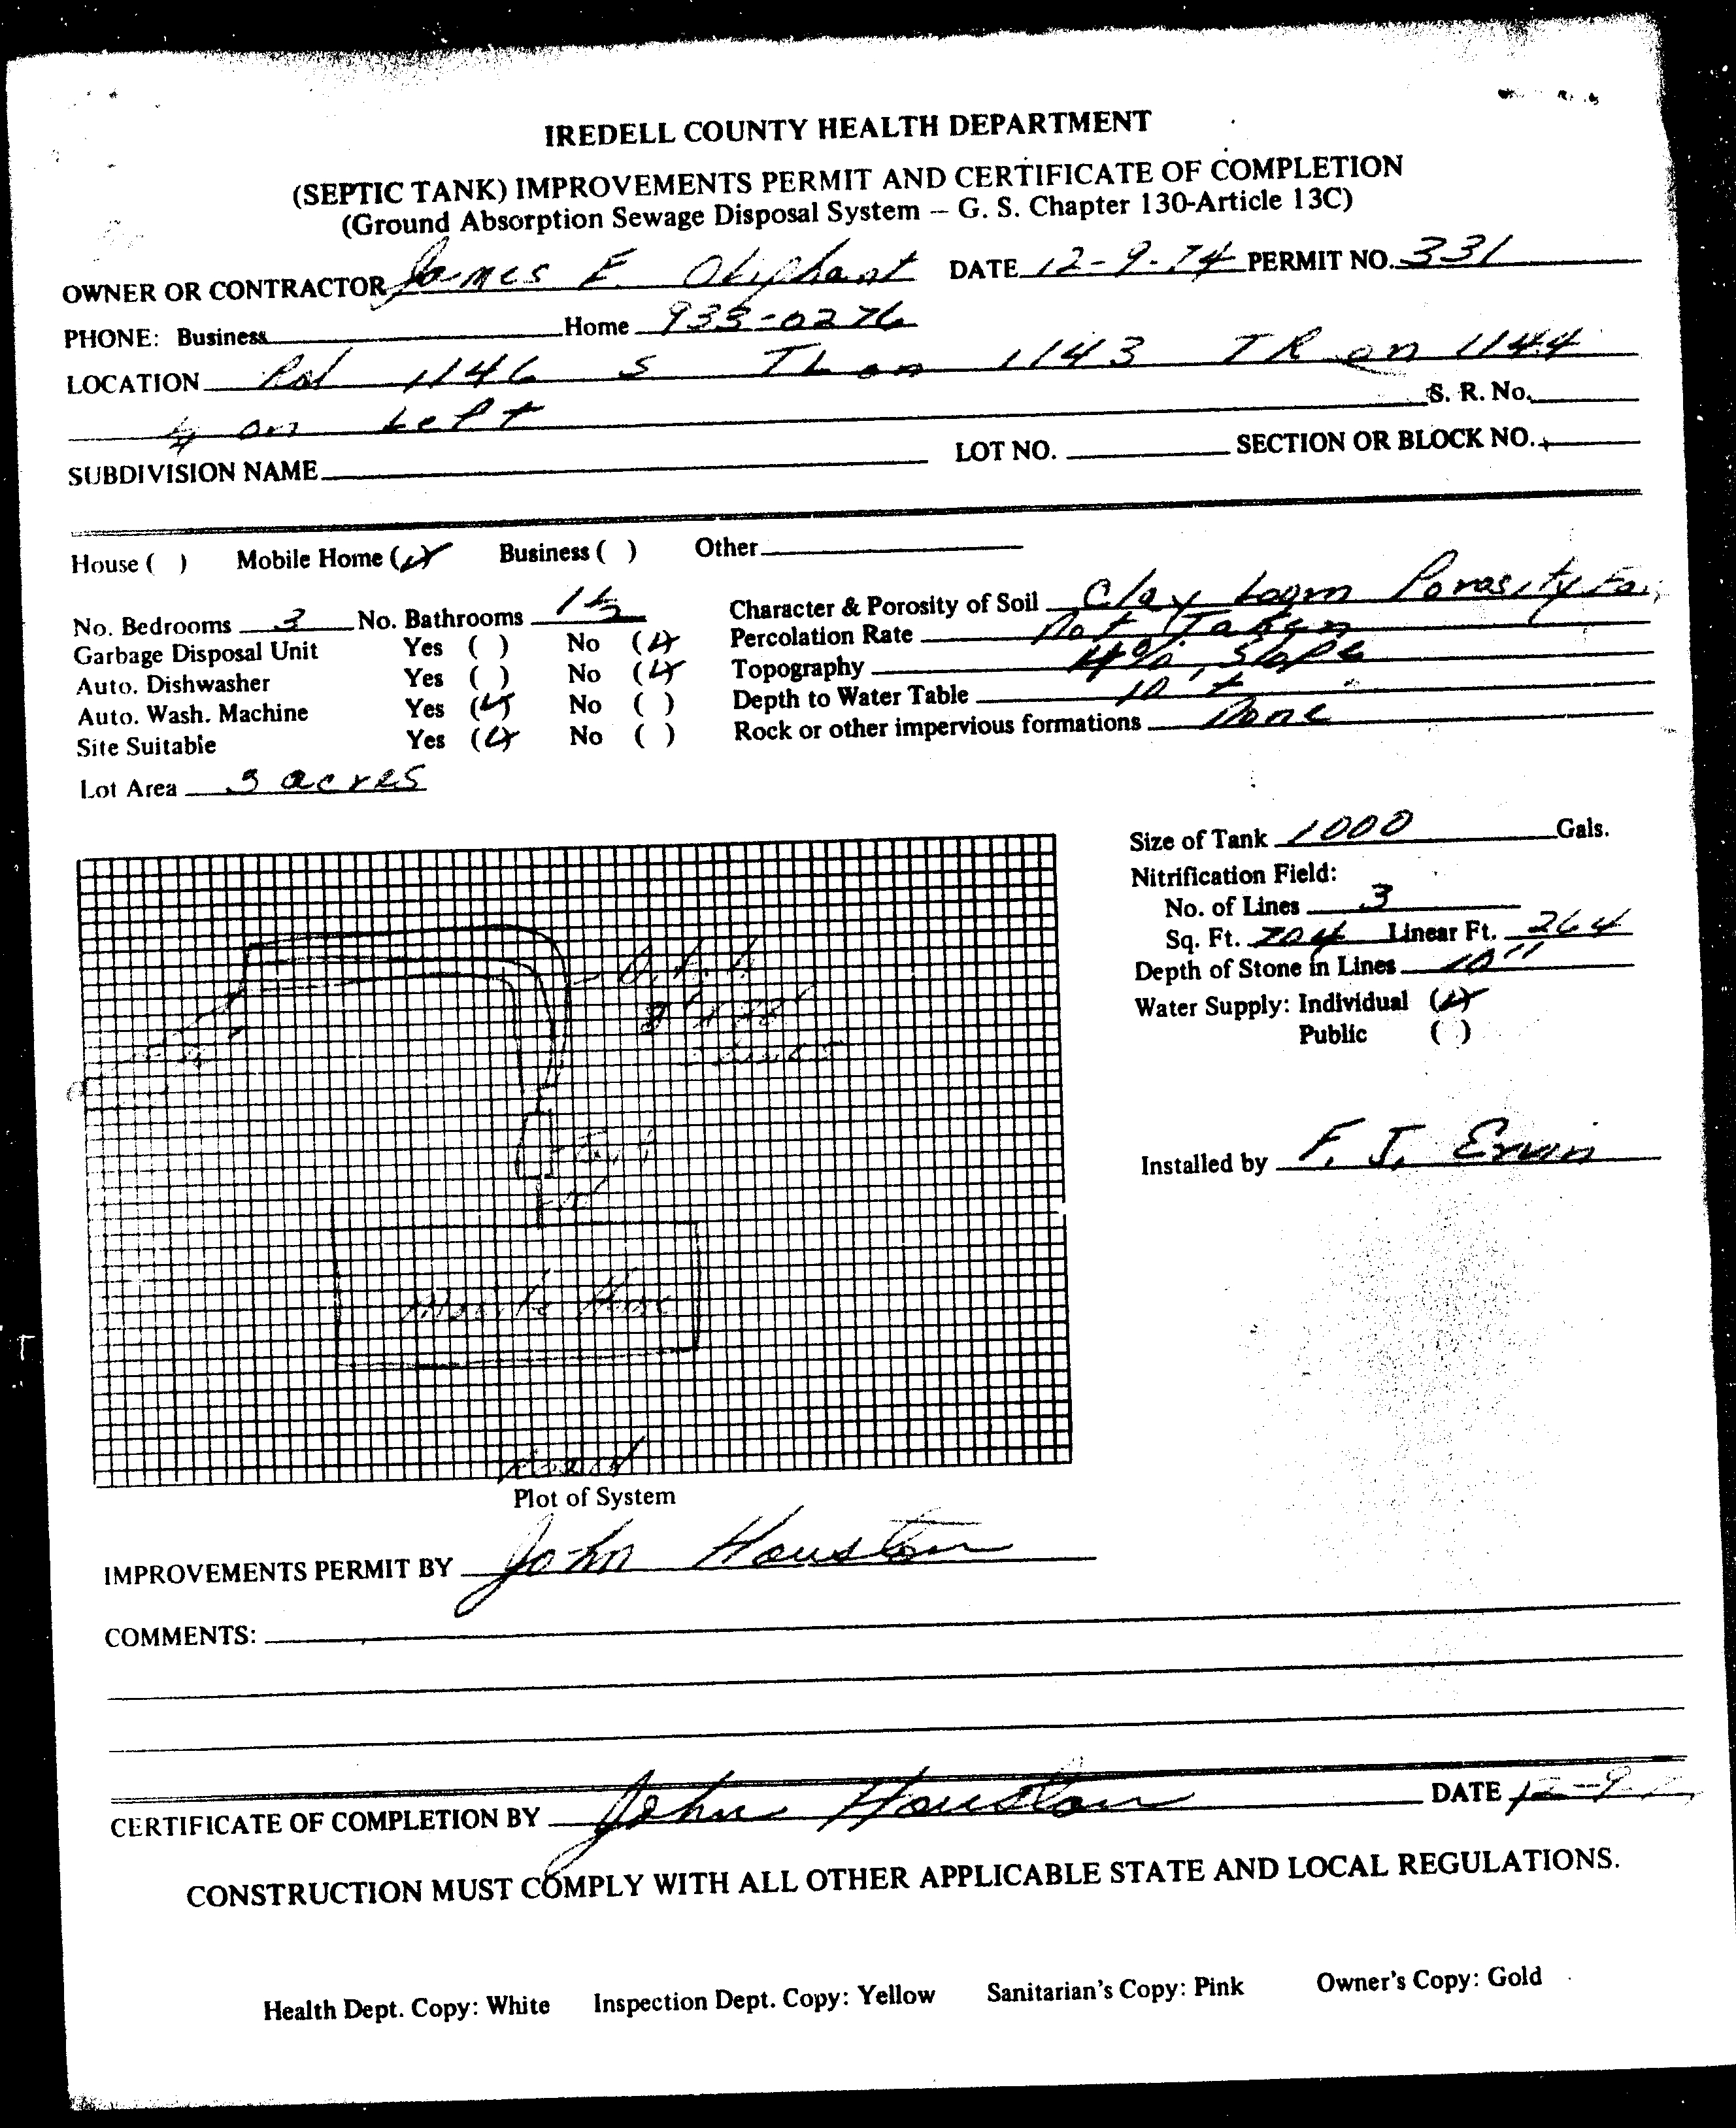 IREDELL COUNTY HEALTH DEPARTMENT
(SEPTIC TANK) IMPROVEMENTS PERMIT AND CERTIFICATE OF COMPLETION
(Ground Absorption Sewage Disposal System – G. S. Chapter 130-Article 13C)
OWNER OR CONTRACTOR James E. Oliphant DATE 12-9-74 PERMIT NO. 331
PHONE: Business Home 933-0276
LOCATION Rd 1146 S TL on 1143 TR on 1144
1/4 on Left S. R. No.
SUBDIVISION NAME LOT NO. SECTION OR BLOCK NO.
House ( ) Mobile Home (✓) Business ( ) Other
No. Bedrooms 3 No. Bathrooms 1 1/2 Character & Porosity of Soil Clay Loam Porosity Fai
Garbage Disposal Unit Yes ( ) No (✓) Percolation Rate Not Taken
Auto. Dishwasher Yes ( ) No (✓) Topography 4% Slope
Auto. Wash. Machine Yes (✓) No ( ) Depth to Water Table 10'+
Site Suitable Yes (✓) No ( ) Rock or other impervious formations None
Lot Area 3 acres
Size of Tank 1000 Gals.
Nitrification Field:
No. of Lines 3
Sq. Ft. 704 Linear Ft. 264
Depth of Stone in Lines 10"
Water Supply: Individual (✓)
Public ( )
Installed by F. J. Ervin
Mobile Home
Road
Plot of System
IMPROVEMENTS PERMIT BY John Houston
COMMENTS:
CERTIFICATE OF COMPLETION BY John Houston DATE 12-9-
CONSTRUCTION MUST COMPLY WITH ALL OTHER APPLICABLE STATE AND LOCAL REGULATIONS.
Health Dept. Copy: White Inspection Dept. Copy: Yellow Sanitarian's Copy: Pink Owner's Copy: Gold